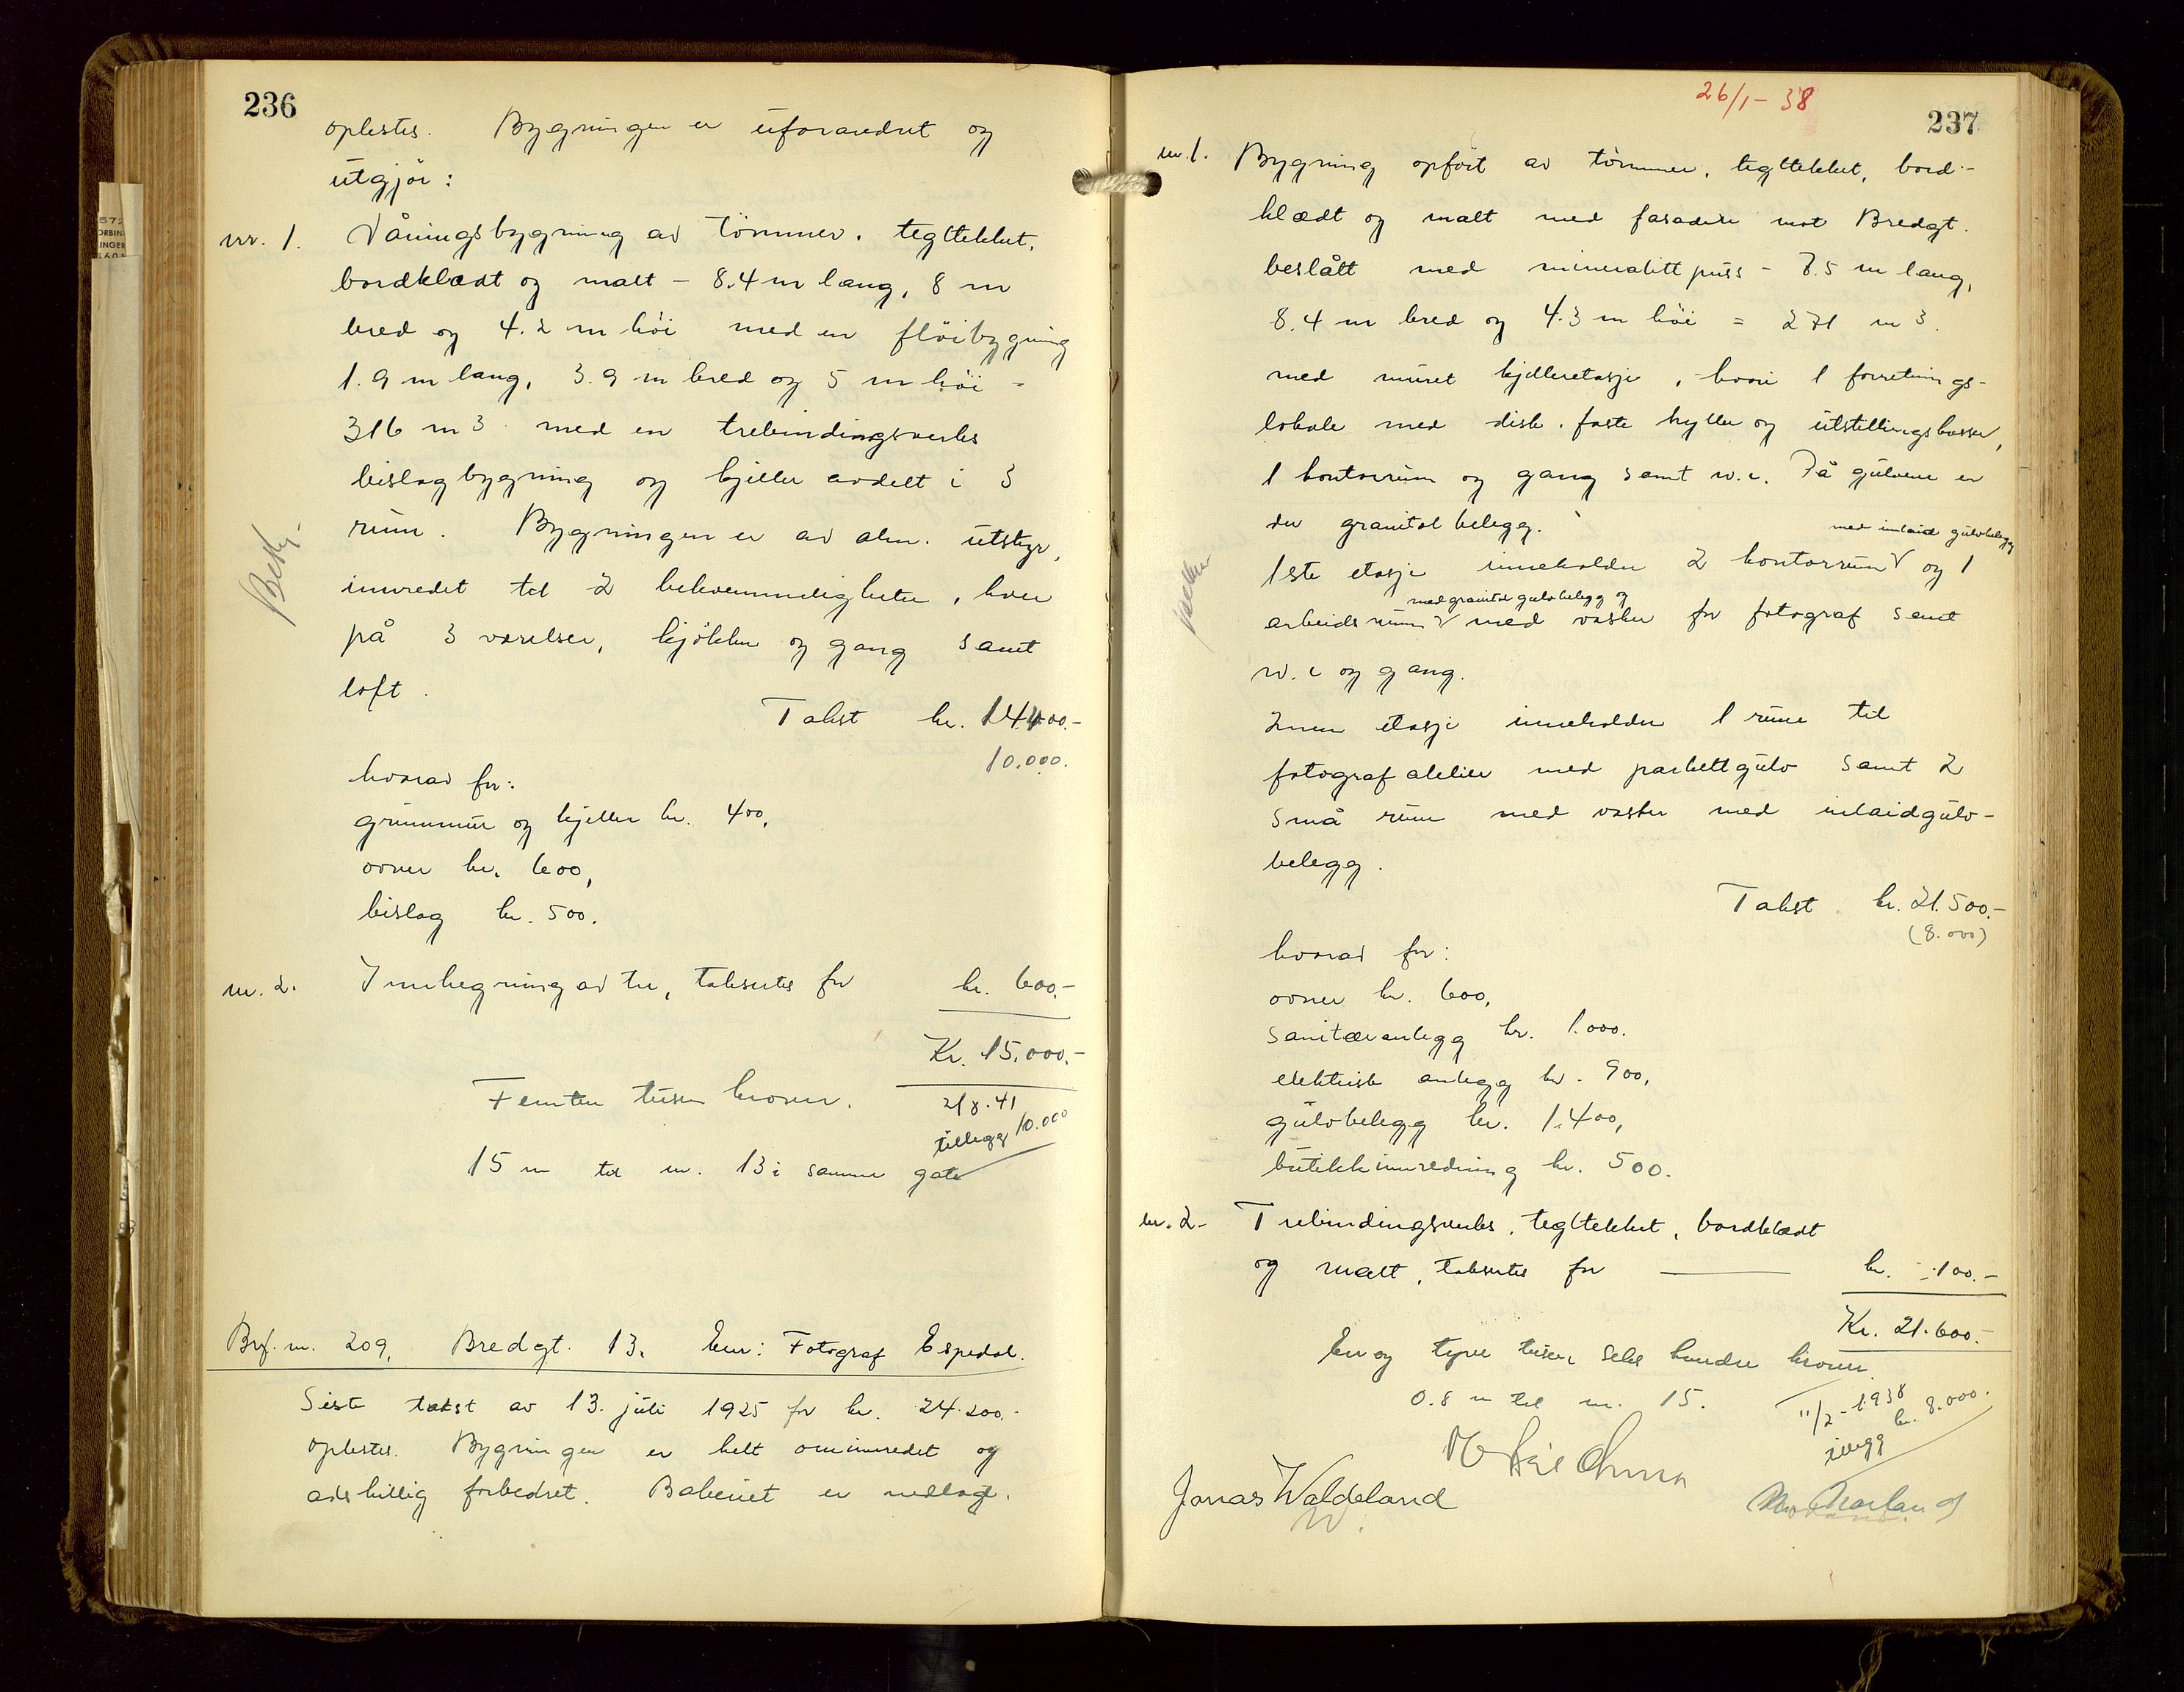 236
oplestes. Bygningen er uforandret og
utgjør:
nr. 1. Våningsbygning av tømmer, tegltekket,
bordklædt og malt – 8.4 m lang, 8 m
bred og 4.2 m høi med en fløibygning
1.9 m lang, 3.9 m bred og 5 m høi =
316 m3 med en trebindingsverks
bislagbygning og kjeller avdelt i 3
rum. Bygningen er av alm. utstyr,
innredet til 2 bekvemmeligheter, hver
på 3 værelser, kjøkken og gang samt
loft.
Takst kr. 14.400.-
10.000.
hvorav for:
grunnmur og kjeller kr. 400,
ovner kr. 600,
bislag kr. 500.
nr. 2. Innhegning av tre, takseres for kr. 600.-
Kr. 15.000.-
Femten tusen kroner.
2/8.41
tillegg 10.000
15 m til nr. 13 i samme gate
Brf. nr. 209, Bredgt. 13. Eier: Fotograf Espedal.
Siste takst av 13. juli 1925 for kr. 24.200.-
oplestes. Bygningen er helt ominnredet og
adskillig forbedret. Bakeriet er nedlagt.
26/1 - 38
237
nr. 1. Bygning opført av tømmer, tegltekket, bord-
klædt og malt med fasaden mot Bredgt.
beslått med mineralittpuss – 7.5 m lang,
8.4 m bred og 4.3 m høi = 271 m3.
med muret kjelleretasje, hvori 1 forretnings-
lokale med disk, faste hyller og utstillingskasser,
1 kontorrum og gang samt w.c. På gulvene er
der granitolbelegg.
med inlaid gulvbelegg
1ste etasje inneholder 2 kontorrum V og 1
med granitol gulvbelegg og
arbeidsrum V med vasker for fotograf samt
w.c og gang.
2nen etasje inneholder 1 rum til
fotografatelier med parkettgulv samt 2
små rum med vasker med inlaidgulv-
belegg.
Takst kr. 21.500.-
(8.000)
hvorav for:
ovner kr. 600,
sanitæranlegg kr. 1.000.
elektrisk anlegg kr. 900,
gulvbelegg kr. 1.400,
butikkinnredning kr. 500.
nr. 2- Trebindingsverks, tegltekket, bordklædt
og malt, takseres for — kr. 100.-
Kr. 21.600.-
En og tyve tusen seks hundre kroner.
0.8 m til nr. 15.
11/2 - 1938
kr. 8.000.
tillegg
Jonas Waldeland